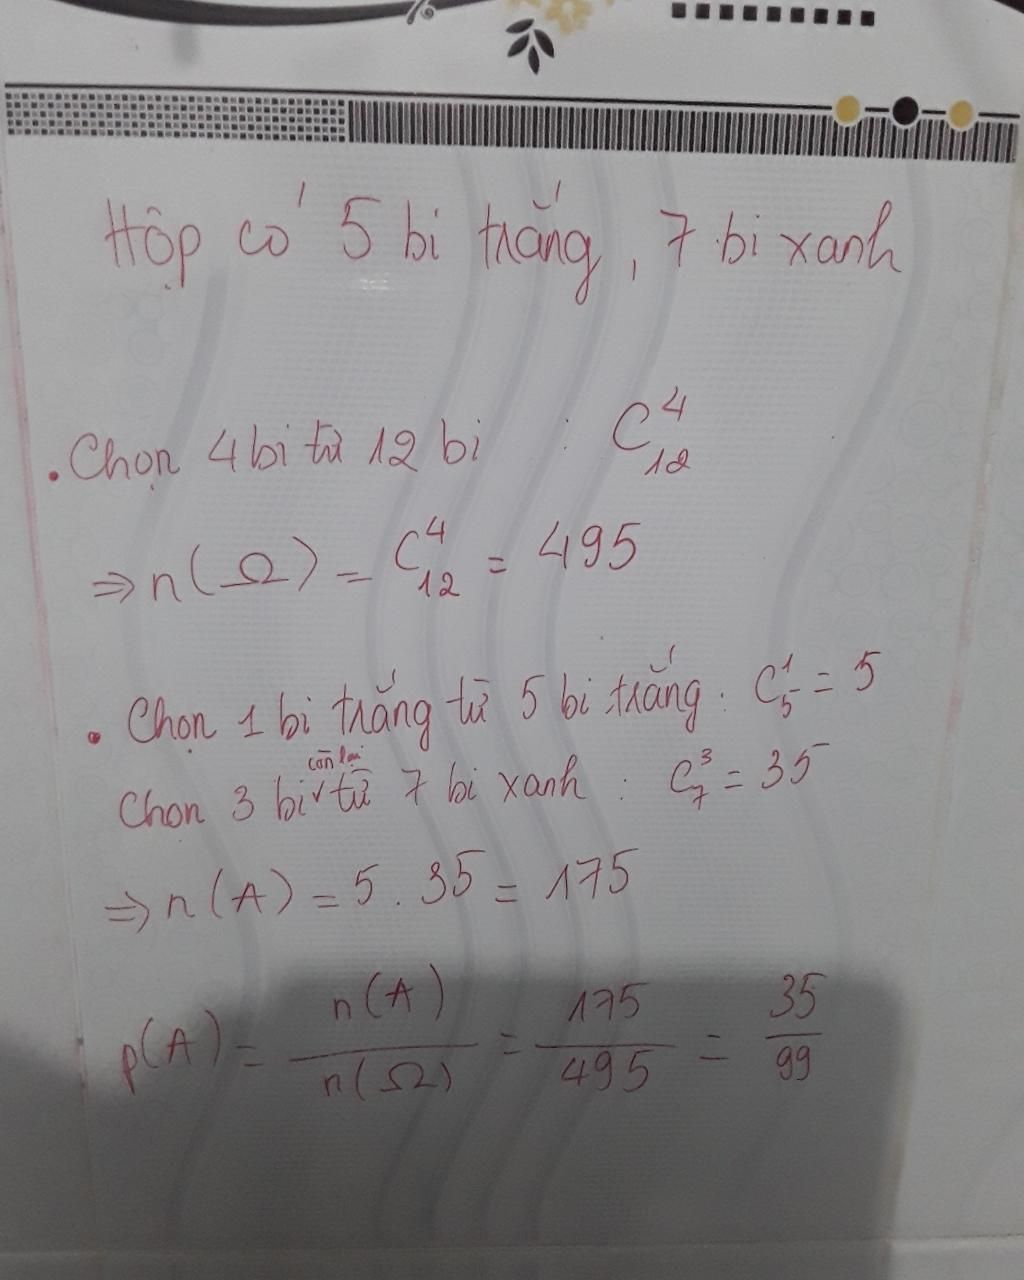 Hộp có 5 bi trắng, 7 bi xanh
. Chọn 4 bi từ 12 bi : C⁴₁₂
⇒ n(Ω) = C⁴₁₂ = 495
. Chọn 1 bi trắng từ 5 bi trắng : C¹₅ = 5
còn lại
Chọn 3 bi ✓ từ 7 bi xanh : C³₇ = 35
⇒ n(A) = 5 . 35 = 175
p(A) = n(A)/n(Ω) = 175/495 = 35/99